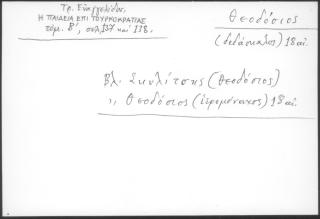 Τρ. Ευαγγελίδου,
Η ΠΑΙΔΕΙΑ ΕΠΙ ΤΟΥΡΚΟΚΡΑΤΙΑΣ
τόμ. Β', σελ. 137 και 118.
Θεοδόσιος
(διδάσκαλος) 18 αι.
Βλ. Σκυλίτσης (Θεοδόσιος)
,, Θεοδόσιος (ιερομόναχος) 18 αι.